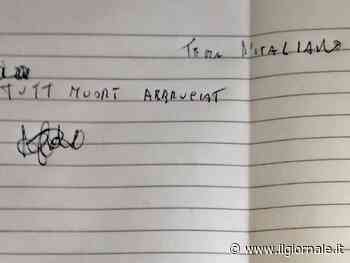 Tema D'ITALIANO
TUTT MUORT ABBRUCIAT
www.ilgiornale.it